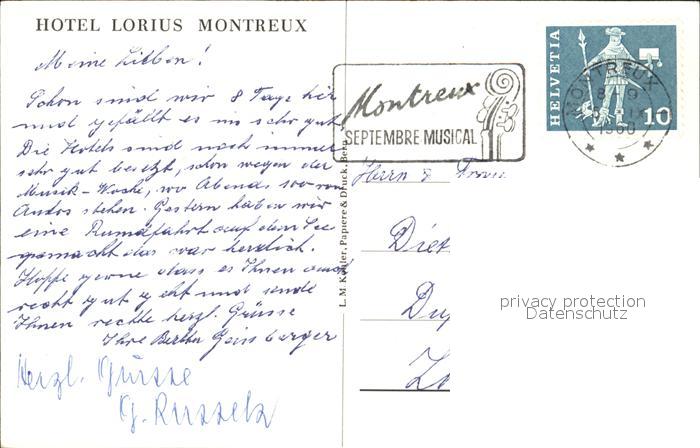 HOTEL LORIUS MONTREUX
Meine Lieben!
Schon sind wir 8 Tage hier
und gefällt es uns sehr gut
Die Hotels sind noch immer
sehr gut besetzt, schon wegen der
Musik-Woche, wo Abends 100 von
Autos stehen. Gestern haben wir
eine Rundfahrt auf dem See
gemacht das war herrlich.
Hoffe gerne dass es Ihnen auch
recht gut geht und sende
Ihnen rechte herzl. Grüsse
Ihre Bertha Geissberger
Herzl. Grüsse
G.
L. M. Papiere & Druck, Bern
Montreux
SEPTEMBRE MUSICAL
HELVETIA
10
MONTREUX
1960
Herrn & Frau
Diet
Du
privacy protection
Datenschutz